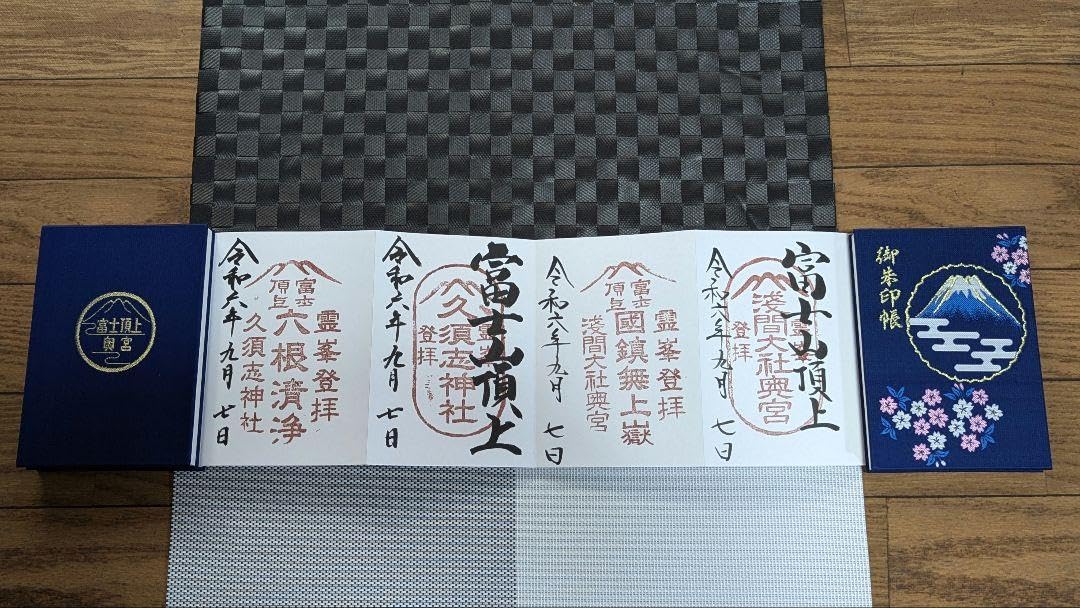 御朱印帳
富士山頂上
登拝
浅間大社奥宮
令和六年九月七日
富士
頂上
霊峯登拝
國鎮無上嶽
浅間大社奥宮
令和六年九月七日
富士山頂上
久須志神社
登拝
令和六年九月七日
富士
頂上
霊峯登拝
六根清浄
久須志神社
令和六年九月七日
富士頂上
奥宮